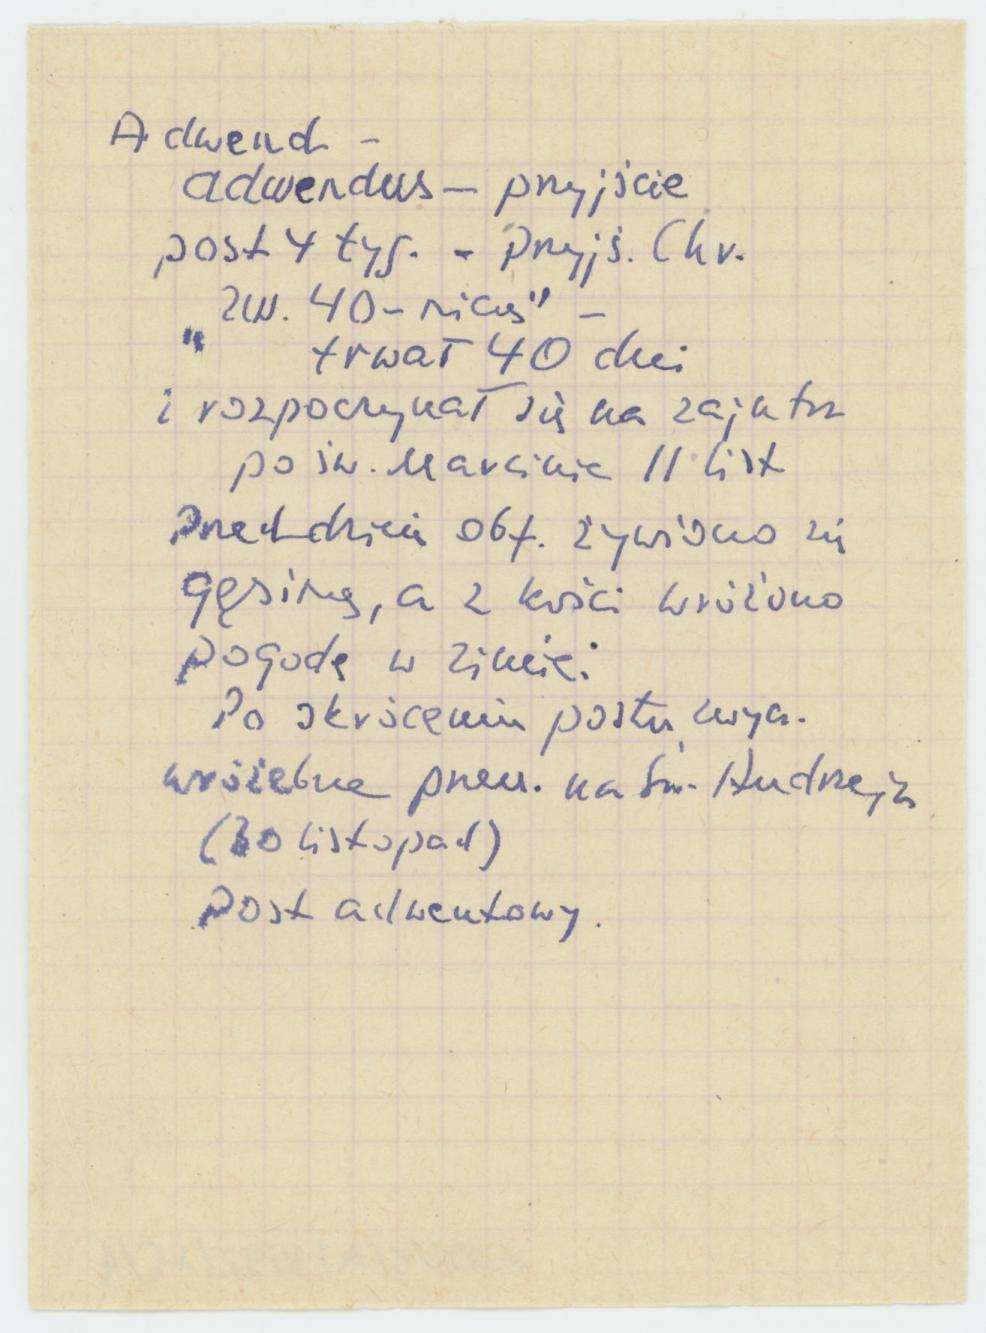 Adwend -
adwendus - przyjście
post 4 tyg. - przyjś. Chr.
zw. 40-nicą" -
" trwał 40 dni
i rozpoczynał się na zajutrz
po św. Marcinie 11 list
Przed dniem obf. żywiono się
gęsiną, a z kości wróżono
pogodę w zimie.
Po skróceniu postu,
wróżebne przen. na Św. Andrzeja
(30 listopad)
Post adwentowy.